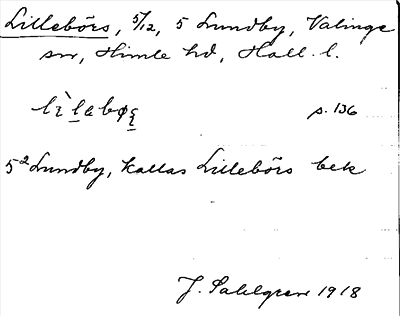 Lillebörs, 5/12, 5 Lundby, Valinge
sn, Himle hd, Hall. l.
lìlabøş p. 136
5² Lundby, kallas Lillebörs bek
J. Sahlgren 1918